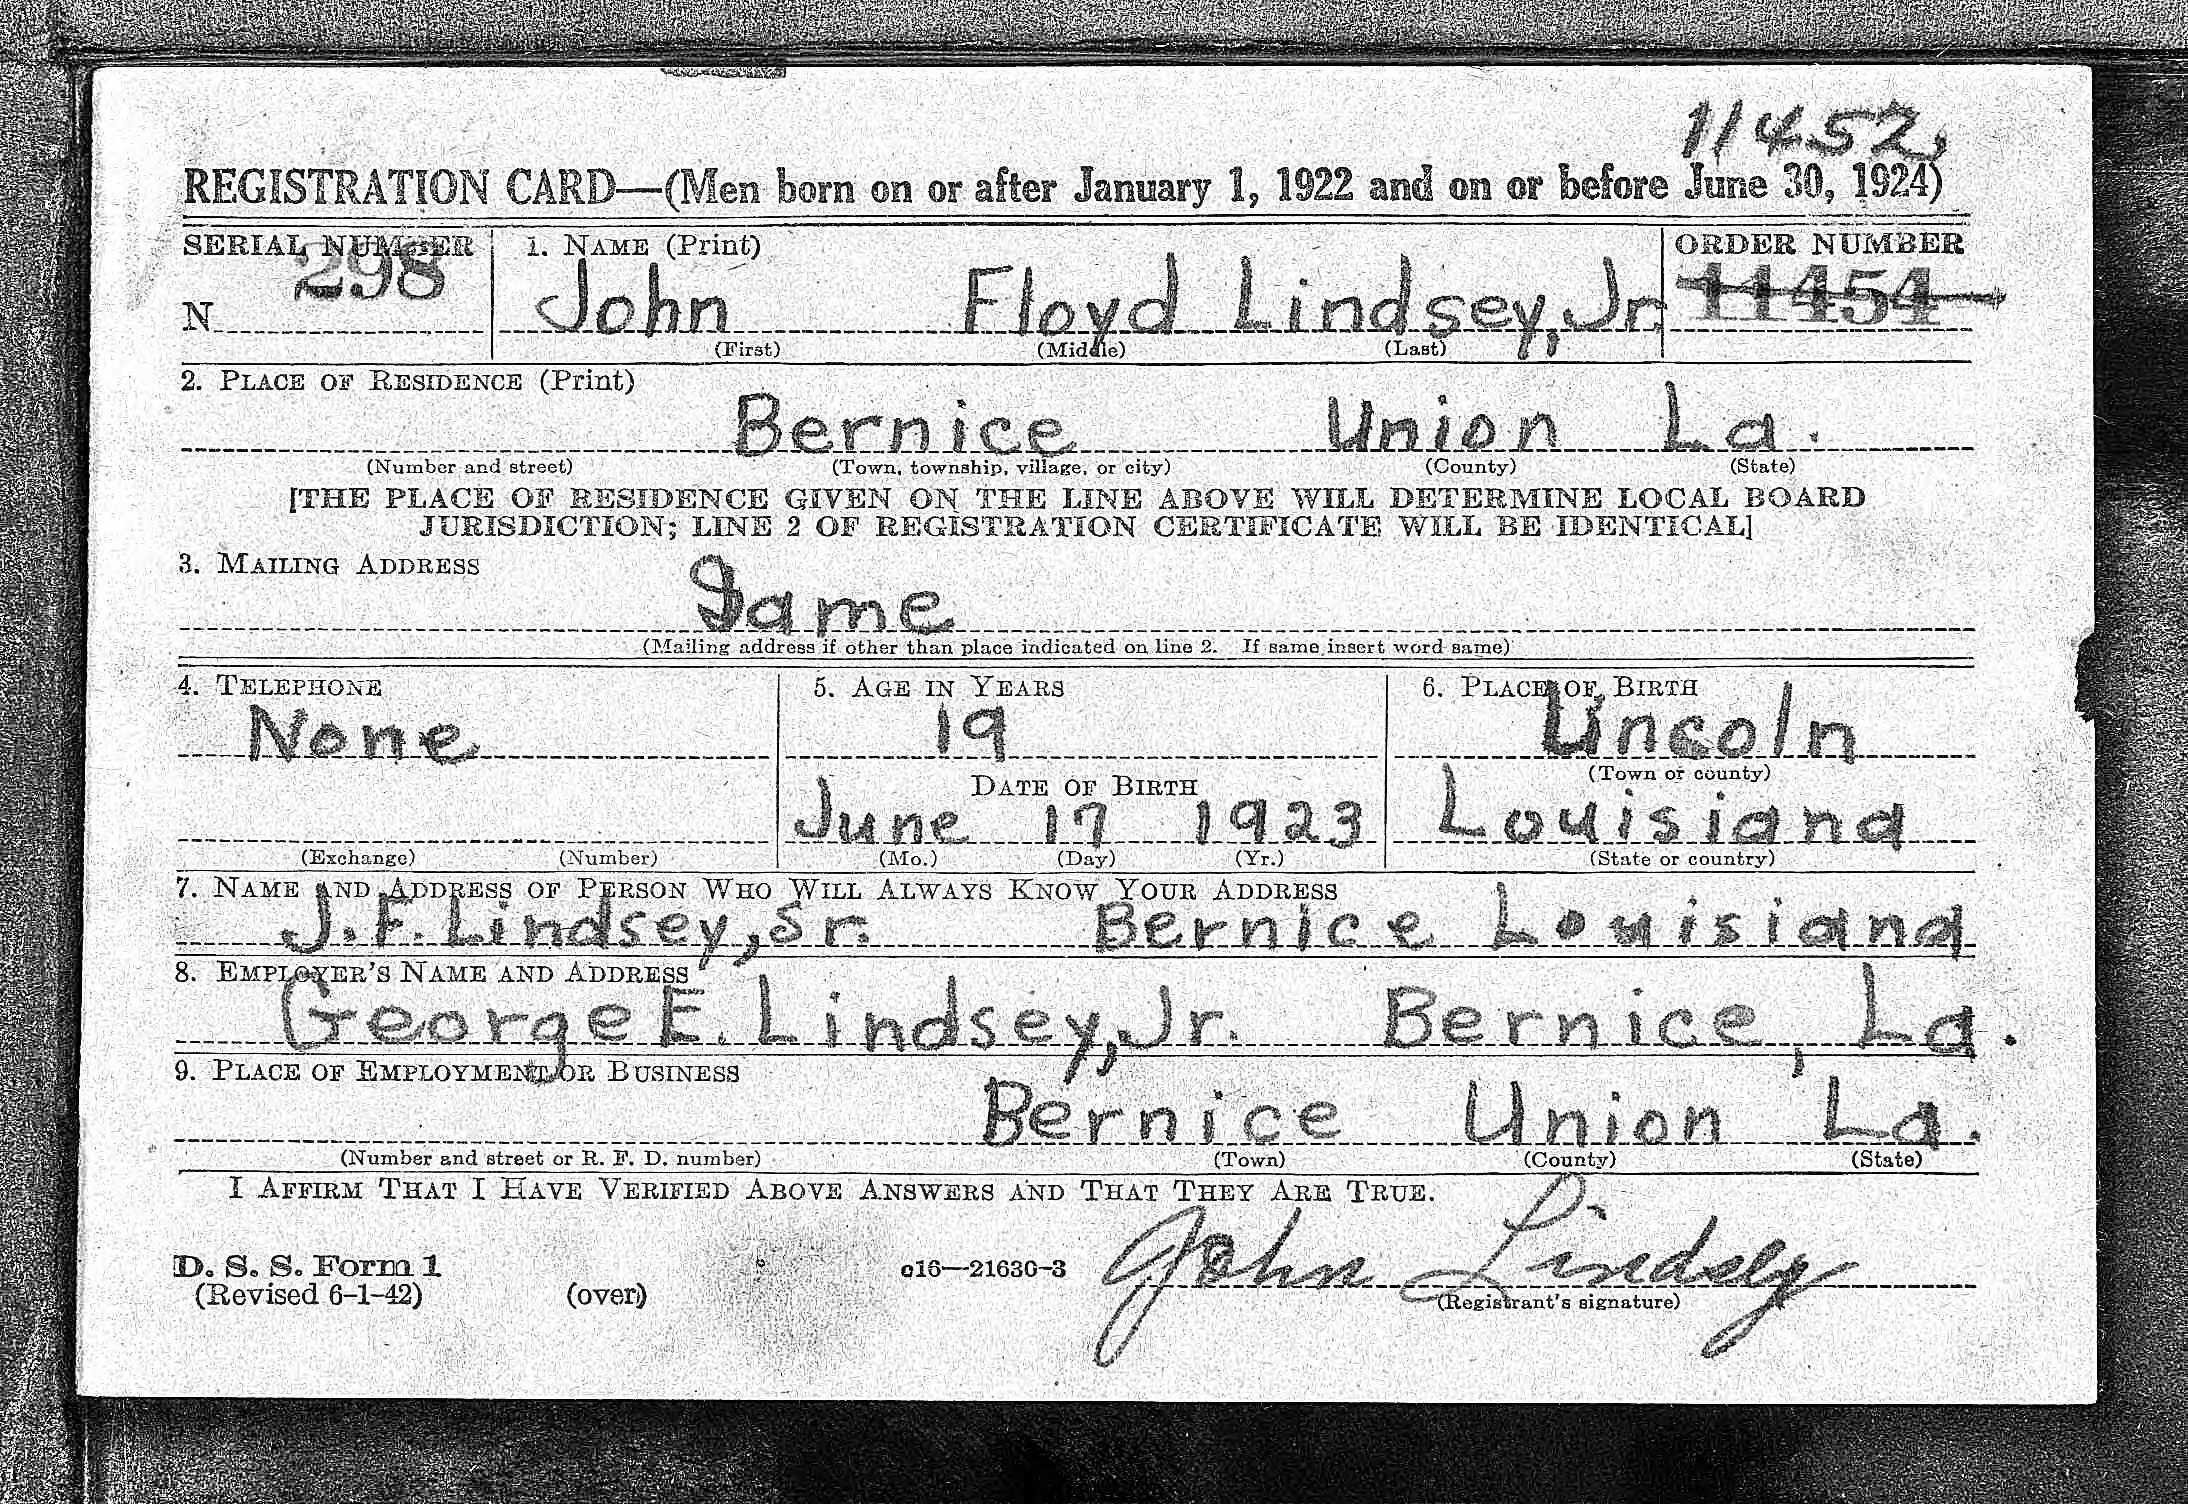 11452,
REGISTRATION CARD—(Men born on or after January 1, 1922 and on or before June 30, 1924)
SERIAL NUMBER 1. NAME (Print) ORDER NUMBER
298 John Floyd Lindsey, Jr. 11454
N
(First) (Middle) (Last)
2. PLACE OF RESIDENCE (Print)
Bernice Union La.
(Number and street) (Town, township, village, or city) (County) (State)
[THE PLACE OF RESIDENCE GIVEN ON THE LINE ABOVE WILL DETERMINE LOCAL BOARD
JURISDICTION; LINE 2 OF REGISTRATION CERTIFICATE WILL BE IDENTICAL]
3. MAILING ADDRESS
Same
(Mailing address if other than place indicated on line 2. If same insert word same)
4. TELEPHONE 5. AGE IN YEARS 6. PLACE OF BIRTH
None 19 Lincoln
DATE OF BIRTH (Town or county)
June 17 1923 Louisiana
(Exchange) (Number) (Mo.) (Day) (Yr.) (State or country)
7. NAME AND ADDRESS OF PERSON WHO WILL ALWAYS KNOW YOUR ADDRESS
J. F. Lindsey, Sr. Bernice Louisiana
8. EMPLOYER'S NAME AND ADDRESS
George E. Lindsey, Jr. Bernice, La.
9. PLACE OF EMPLOYMENT OR BUSINESS
Bernice Union La.
(Number and street or R. F. D. number) (Town) (County) (State)
I AFFIRM THAT I HAVE VERIFIED ABOVE ANSWERS AND THAT THEY ARE TRUE.
John Lindsey
D. S. S. Form 1 c16—21630-3
(Revised 6-1-42) (over) (Registrant's signature)